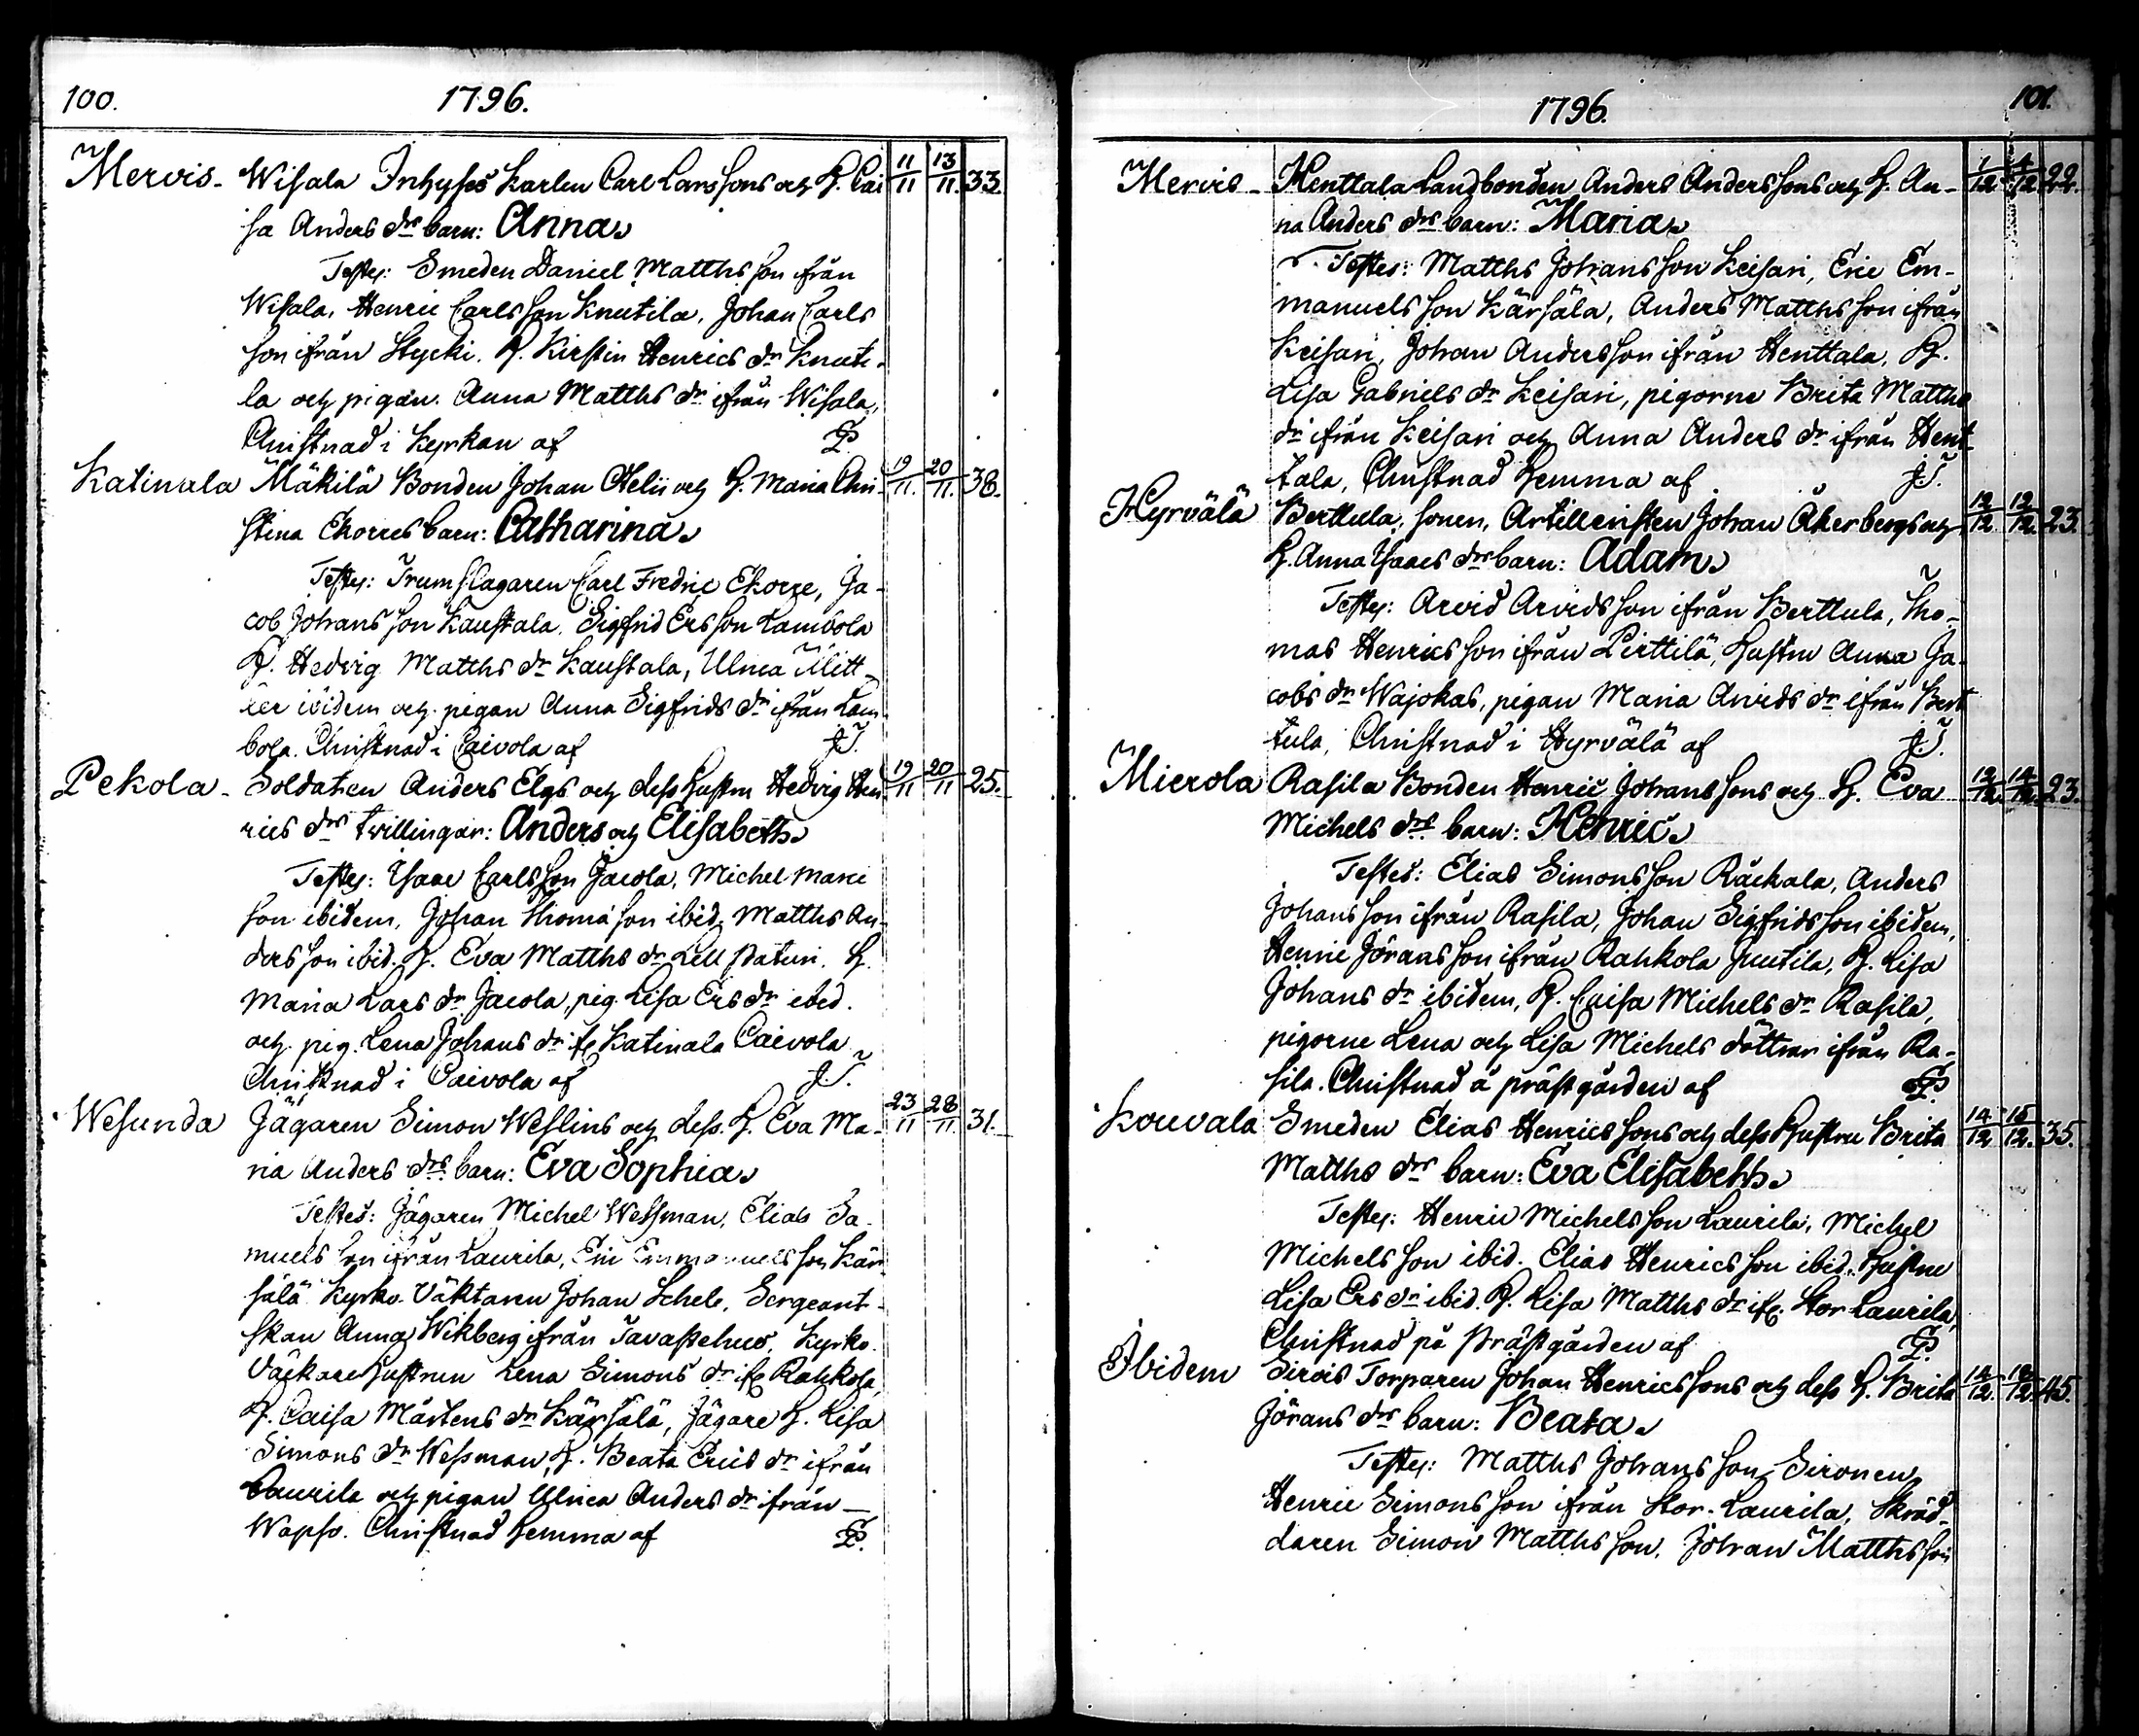 100. 1796.
Mervis - Wisala Inhyses Karlen Carl Larssons och H. Cai 11/11 13/11. 33.
sa Anders drs barn: Anna.
Testes: Smeden Daniel Matthsson ifrån
Wisala, Henric Carlsson Knutila, Johan Carls
son ifrån Stycki. H. Kirstin Henrics dr Knuti-
la och pigan Anna Matths dr ifrån Wisala,
Christnad i Kyrkan af
Katinala Mäkilä Bonden Johan Helii och H. Maria Chri- 19/11. 20/11. 38.
stina Ekorres barn: Catharina.
Testes: Trumslagaren Carl Fredric Ekorre, Ja-
cob Johansson Kaustala, Sigfrid Ersson Lambola
H. Hedvig Matths dr Kaustala, Ulrica
ibidem och pigan Anna Sigfrids dr ifrån Lam-
bola. Christnad i Caivola af J.T.
Pekola - Soldaten Anders Elgs och dess hustru Hedvig Hen- 19/11 20/11 25.
rics drs tvillingar: Anders och Elisabeth.
Testes: Isaac Carlsson Jacola, Michel
son ibidem, Johan Thomasson ibid. Matths An-
dersson ibid. H. Eva Matths dr Lill Paturi. H.
Maria Lars dr Jacola, pig. Lisa Ers dr ibid.
och pig. Lena Johans dr if Katinala Caivola
Christnad i Caivola af J.T.
Wesunda Jägaren Simon Weslins och dess H. Eva Ma- 23/11 28/11. 31.
ria Anders drs barn: Eva Sophia.
Testes: Jägaren Michel Wessman, Elias Sa-
muelsson ifrån Laurila, Eric Emmanuelsson Kär-
sälä Kyrko Väktaren Johan Schele, Sergeant-
skan Anna Wikberg ifrån Tavastehus, Kyrko-
Väckare hustrun Lena Simons dr if Rahkola,
H. Caisa Mårtens dr Kärsälä, Jägare H. Lisa
Simons dr Wessman, H. Beata Erics dr ifrån
Laurila och pigan Ulrica Anders dr ifrån
Wapso. Christnad hemma af
1796. 101.
Mervis - Henttala Landbonden Anders Anderssons och H. An- 1/12 4/12 22.
na Anders drs barn: Maria.
Testes: Matths Johansson Keisari, Eric Em-
manuelsson Kärsäla, Anders Matthsson ifrån
Keisari, Johan Andersson ifrån Henttala, H.
Lisa Gabriels dr Keisari, pigorne Brita Matths
dr ifrån Keisari och Anna Anders dr ifrån Hent-
tala, Christnad hemma af J.T.
Hyrvälä Berttula, sonen, Artilleristen Johan Åkerbergs och 12/12. 12/12. 23.
H. Anna Isaacs drs barn: Adam.
Testes: Arvid Arvidsson ifrån Berttula, Tho-
mas Henricsson ifrån Pirttilä, hustru Anna Ja-
cobs dr Wajokas, pigan Maria Arvids dr ifrån Bert
tula, Christnad i Hyrvälä af J.T.
Mierola Rasila Bonden Henric Johanssons och H. Eva 12/12. 14/12. 23.
Michels drs barn: Henric.
Testes: Elias Simonsson Räckala, Anders
Johansson ifrån Rasila, Johan Sigfridsson ibidem,
Henric Jöransson ifrån Rahkola Juutila, H. Lisa
Johans dr ibidem, H. Caisa Michels dr Rasila,
pigorne Lena och Lisa Michels döttrar ifrån Ra-
sila. Christnad å prästgården af
Kouvala Smeden Elias Henricssons och dess hustru Brita 14/12 15/12. 35.
Matths drs barn: Eva Elisabeth.
Testes: Henric Michelsson Laurila, Michel
Michelsson ibid. Elias Henricsson ibid. hustru
Lisa Ers dr ibid. H. Lisa Matths dr if. Stor Laurila,
Christnad på Prästgården af
Ibidem Sirois Torparen Johan Henricssons och dess H. Brita 14/12. 45.
Jörans drs barn: Beata.
Testes: Matths Johansson Sironen,
Henric Simonsson ifrån Stor-Laurila, Skräd-
daren Simon Matthsson, Johan Matthsson